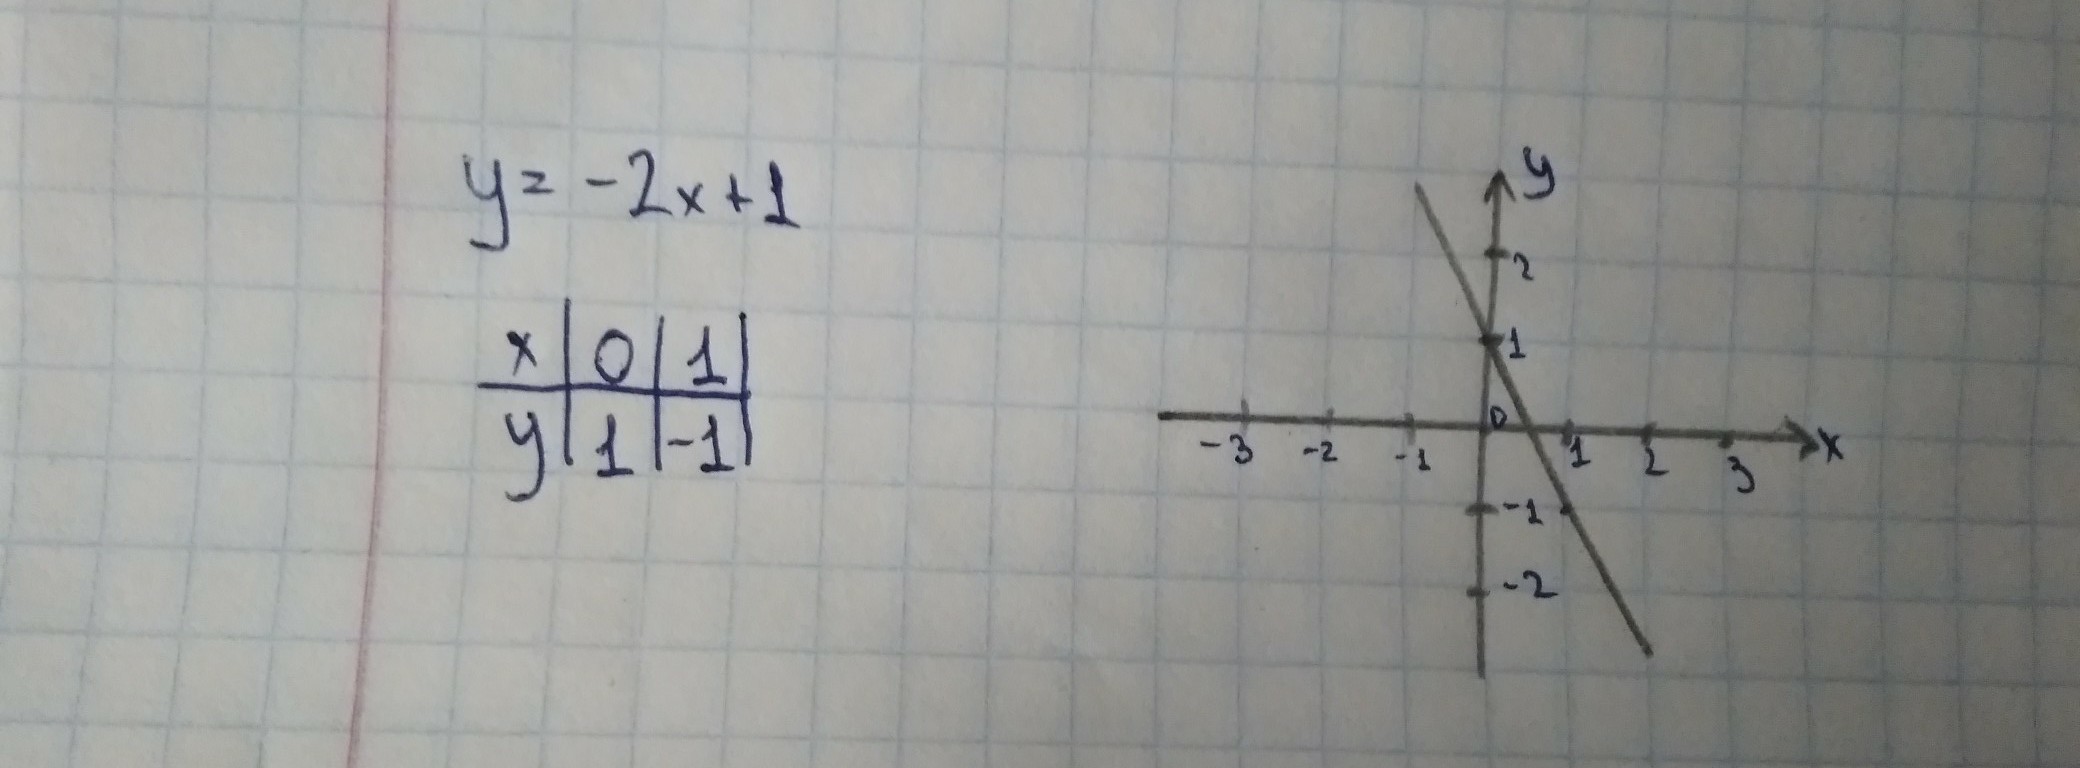 y = -2x + 1
x | 0 | 1 |
y | 1 | -1 |
y
2
1
0
-3 -2 -1 1 2 3 x
-1
-2